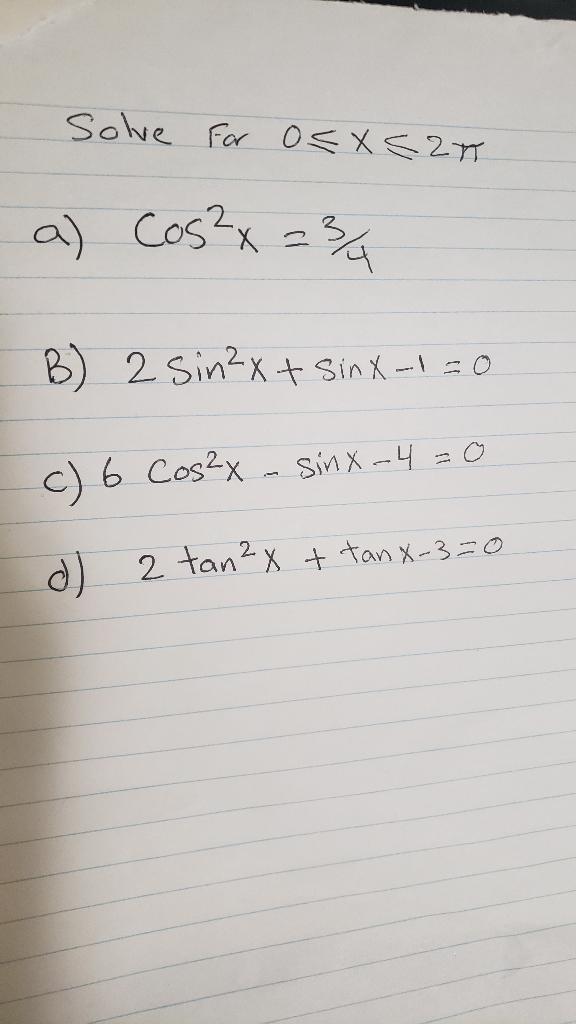 Solve For 0 ≤ x ≤ 2π
a) Cos²x = 3/4
B) 2 Sin²x + Sinx - 1 = 0
c) 6 Cos²x - Sinx - 4 = 0
d) 2 tan²x + tanx - 3 = 0